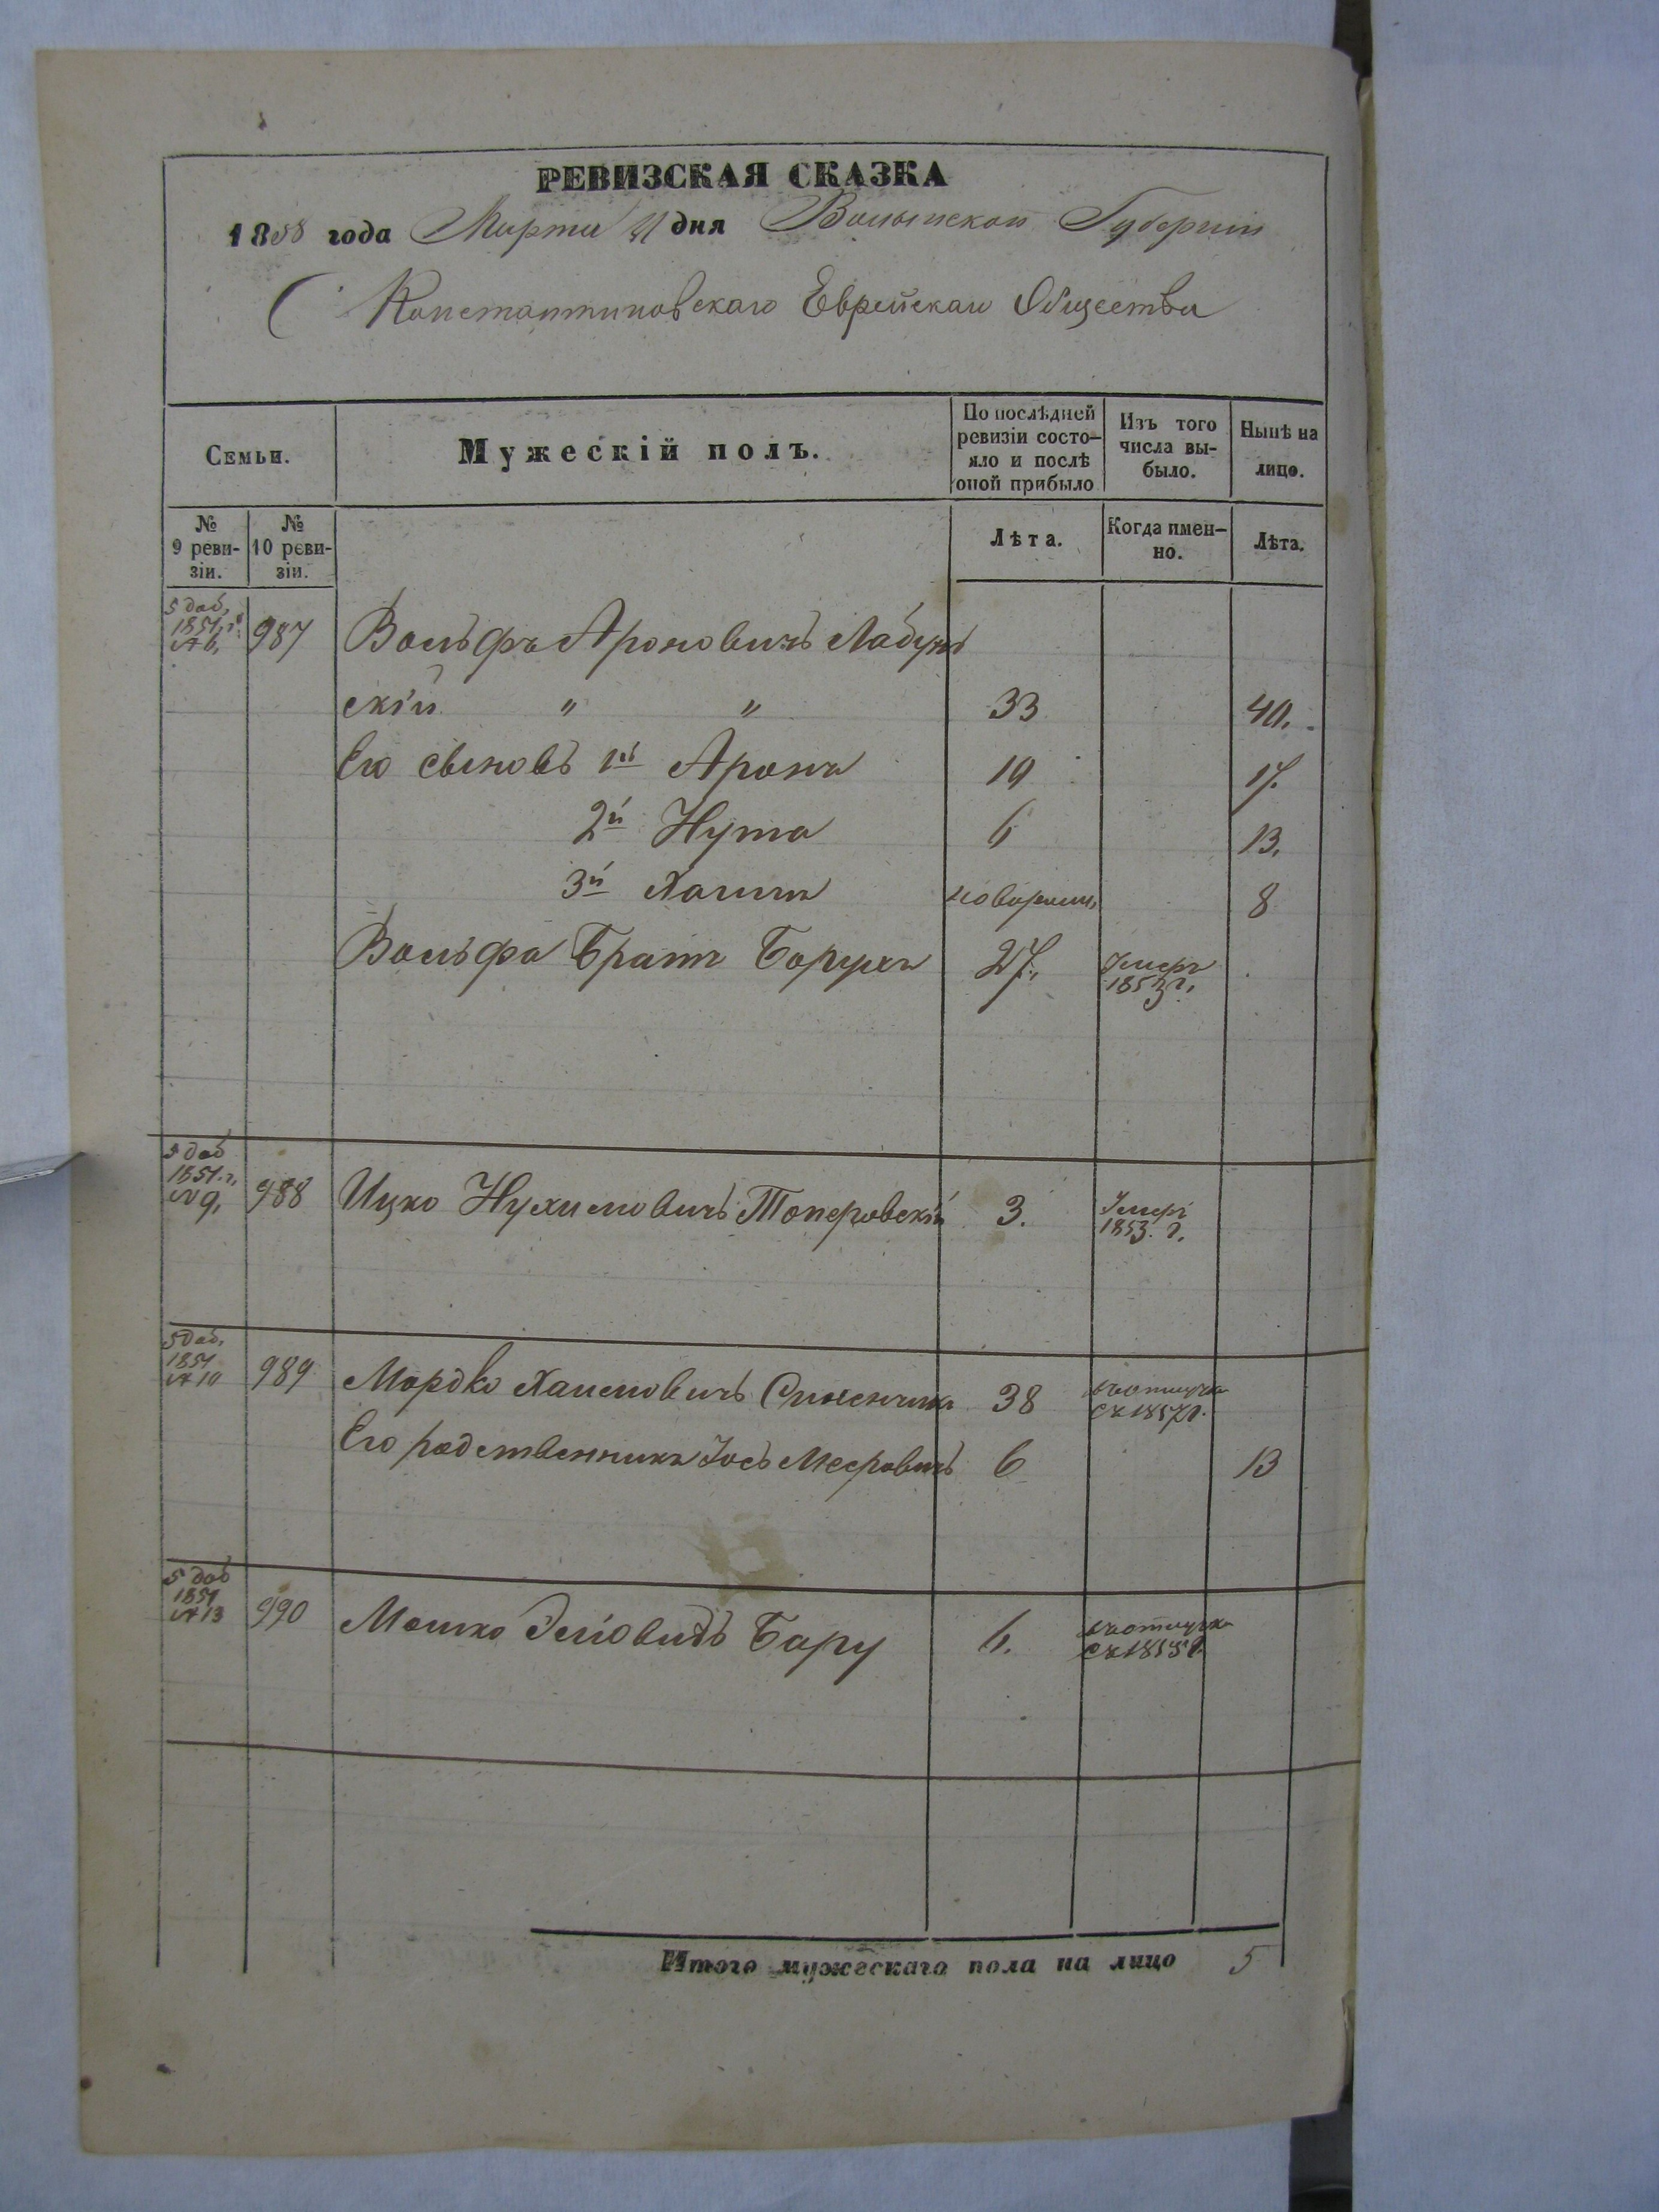 РЕВИЗСКАЯ СКАЗКА
1858 года Марта дня Волынской Губерніи
Константиновскаго Еврейскаго Общества
Семьи.
Мужескій полъ.
По послѣдней ревизіи состо-
яло и послѣ
оной прибыло
Изъ того
числа вы-
было.
Нынѣ на
лицо.
№
9 реви-
зіи.
№
10 реви-
зіи.
Лѣта.
Когда имен-
но.
Лѣта.
5 доб,
1851 г.
№ 6,
987 Вольфъ Ароновичъ Лабунь
скій " " 33 40.
Его сыновъ 1й Аронъ 10 17.
2й Нута 6 13.
3й Хаимъ новорожд, 8
Вольфа Братъ Борухъ 27, Умеръ
1853 г.
5 доб
1851 г,
№ 9,
988 Ицко Нухимовичъ Топоровскій 3. Умеръ
1853. г.
5 доб,
1851
№ 10
989 Мордко Хаимовичъ 38 въ отлучке
съ 1857 г.
Его родственникъ Іось Мееровичъ 6 13
5 доб
1851
№ 13
990 Мошко Эліовичъ Бару 6. въ отлучке
съ г.
Итого мужескаго пола на лицо 5